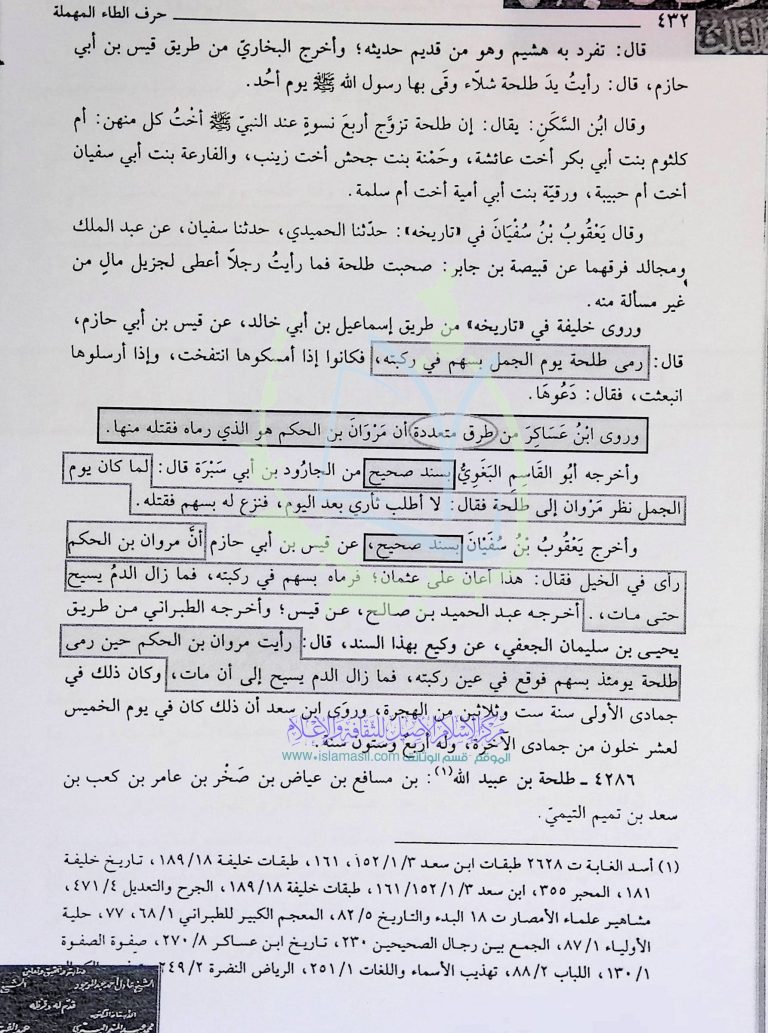 ٤٣٢ حرف الطاء المهملة
قال: تفرد به هشيم وهو من قديم حديثه؛ وأخرج البخاريّ من طريق قيس بن أبي
حازم، قال: رأيتُ يدَ طلحة شلاّء وقَى بها رسول الله ﷺ يوم أُحُد.
وقال ابْنُ السَّكَنِ: يقال: إن طلحة تزوَّج أربعَ نسوةٍ عند النبيّ ﷺ أخْتُ كل منهن: أم
كلثوم بنت أبي بكر أخت عائشة، وحَمْنة بنت جحش أخت زينب، والفارعة بنت أبي سفيان
أخت أم حبيبة، ورقيّة بنت أبي أمية أخت أم سلمة.
وقال يَعْقُوبُ بْنُ سُفْيَانَ في «تاريخه»: حدّثنا الحميدي، حدثنا سفيان، عن عبد الملك
ومجالد فرقهما عن قبيصة بن جابر: صحبت طلحة فما رأيتُ رجلاً أعطى لجزيل مالٍ من
غير مسألة منه.
وروى خليفة في «تاريخه» من طريق إسماعيل بن أبي خالد، عن قيس بن أبي حازم،
قال: رمى طلحة يوم الجمل بسهم في ركبته، فكانوا إذا أمسكوها انتفخت، وإذا أرسلوها
انبعثت، فقال: دَعُوهَا.
وروى ابْنُ عَسَاكِرَ من طرق متعددة أن مَرْوَانَ بن الحكم هو الذي رماه فقتله منها.
وأخرجه أبُو القَاسِمِ البَغَوِيُّ بسند صحيح من الجارُود بن أبي سَبْرَة قال: لما كان يوم
الجمل نظر مَرْوان إلى طلْحة فقال: لا أطلب ثأري بعد اليوم، فنزع له بسهم فقتله.
وأخرج يَعْقُوبُ بْنُ سُفْيَانَ بسند صحيح، عن قيس بن أبي حازم أنَّ مروان بن الحكم
رأى في الخيل فقال: هذا أعان على عثمان؛ فرماه بسهم في ركبته، فما زال الدمُ يسيح
حتى مات،. أخرجه عبد الحميد بن صالح، عن قيس؛ وأخرجه الطبراني من طريق
يحيى بن سليمان الجعفي، عن وكيع بهذا السند، قال: رأيت مروان بن الحكم حين رمى
طلحة يومئذ بسهم فوقع في عين ركبته، فما زال الدم يسيح إلى أن مات، وكان ذلك في
جمادى الأولى سنة ست وثلاثين من الهجرة، وروَى ابن سعد أن ذلك كان في يوم الخميس
لعشر خلون من جمادى الآخرة، وله أربعٌ وستون سنة.
مركز الإسلام الأصيل للثقافة والإعلام
الموقع - قسم الوثائق www.islamasil.com
٤٢٨٦ ـ طلحة بن عبيد الله(١): بن مسافع بن عياض بن صَخْر بن عامر بن كعب بن
سعد بن تميم التيميّ.
(١) أسد الغابة ت ٢٦٢٨ طبقات ابن سعد ١٥٢/١/٣، ١٦١، طبقات خليفة ١٨٩/١٨، تاريخ خليفة
١٨١، المحبر ٣٥٥، ابن سعد ١٥٢/١/٣/١٦١، طبقات خليفة ١٨٩/١٨، الجرح والتعديل ٤٧١/٤،
مشاهير علماء الأمصار ت ١٨ البدء والتاريخ ٨٢/٥، المعجم الكبير للطبراني ٦٨/١، ٧٧، حلية
الأولياء ٨٧/١، الجمع بين رجال الصحيحين ٢٣٠، تاريخ ابن عساكر ٢٧٠/٨، صفوة الصفوة
١٣٠/١، اللباب ٨٨/٢، تهذيب الأسماء واللغات ٢٥١/١، الرياض النضرة ٢٤٩/٢